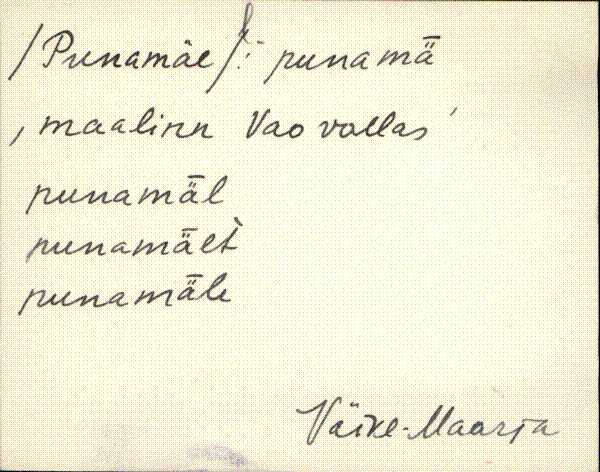 /Punamäe/: punamǟ
, maalinn Vao vallas ’
punamǟl
punamǟlt
punamǟle
Väike-Maarja